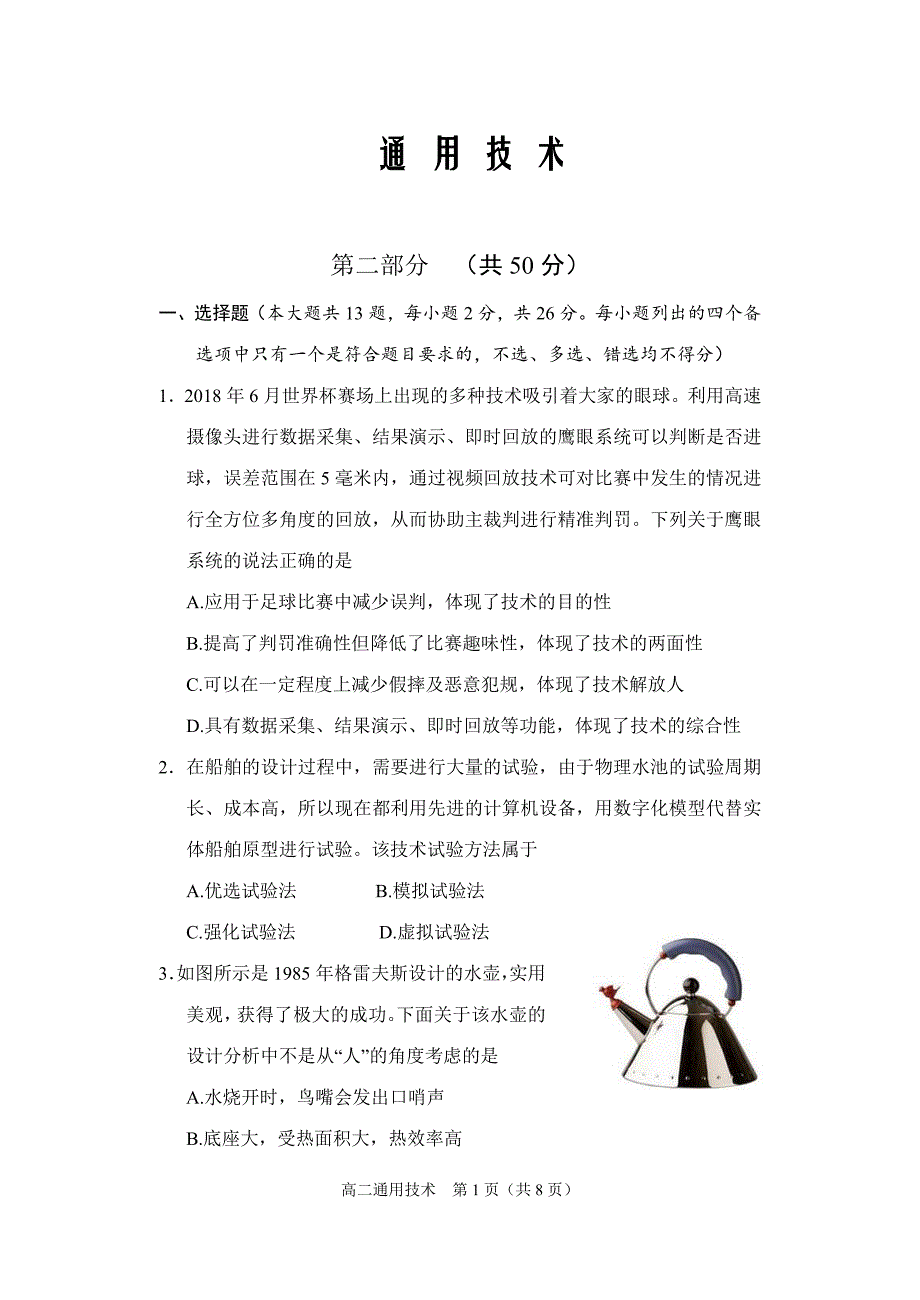 通 用 技 术
第二部分 （共 50 分）
一、选择题（本大题共 13 题，每小题 2 分，共 26 分。每小题列出的四个备
选项中只有一个是符合题目要求的，不选、多选、错选均不得分）
1．2018 年 6 月世界杯赛场上出现的多种技术吸引着大家的眼球。利用高速
摄像头进行数据采集、结果演示、即时回放的鹰眼系统可以判断是否进
球，误差范围在 5 毫米内，通过视频回放技术可对比赛中发生的情况进
行全方位多角度的回放，从而协助主裁判进行精准判罚。下列关于鹰眼
系统的说法正确的是
A.应用于足球比赛中减少误判，体现了技术的目的性
B.提高了判罚准确性但降低了比赛趣味性，体现了技术的两面性
C.可以在一定程度上减少假摔及恶意犯规，体现了技术解放人
D.具有数据采集、结果演示、即时回放等功能，体现了技术的综合性
2．在船舶的设计过程中，需要进行大量的试验，由于物理水池的试验周期
长、成本高，所以现在都利用先进的计算机设备，用数字化模型代替实
体船舶原型进行试验。该技术试验方法属于
A.优选试验法 B.模拟试验法
C.强化试验法 D.虚拟试验法
3.如图所示是 1985 年格雷夫斯设计的水壶,实用
美观,获得了极大的成功。下面关于该水壶的
设计分析中不是从“人”的角度考虑的是
A.水烧开时，鸟嘴会发出口哨声
B.底座大，受热面积大，热效率高
高二通用技术 第 1 页（共 8 页）